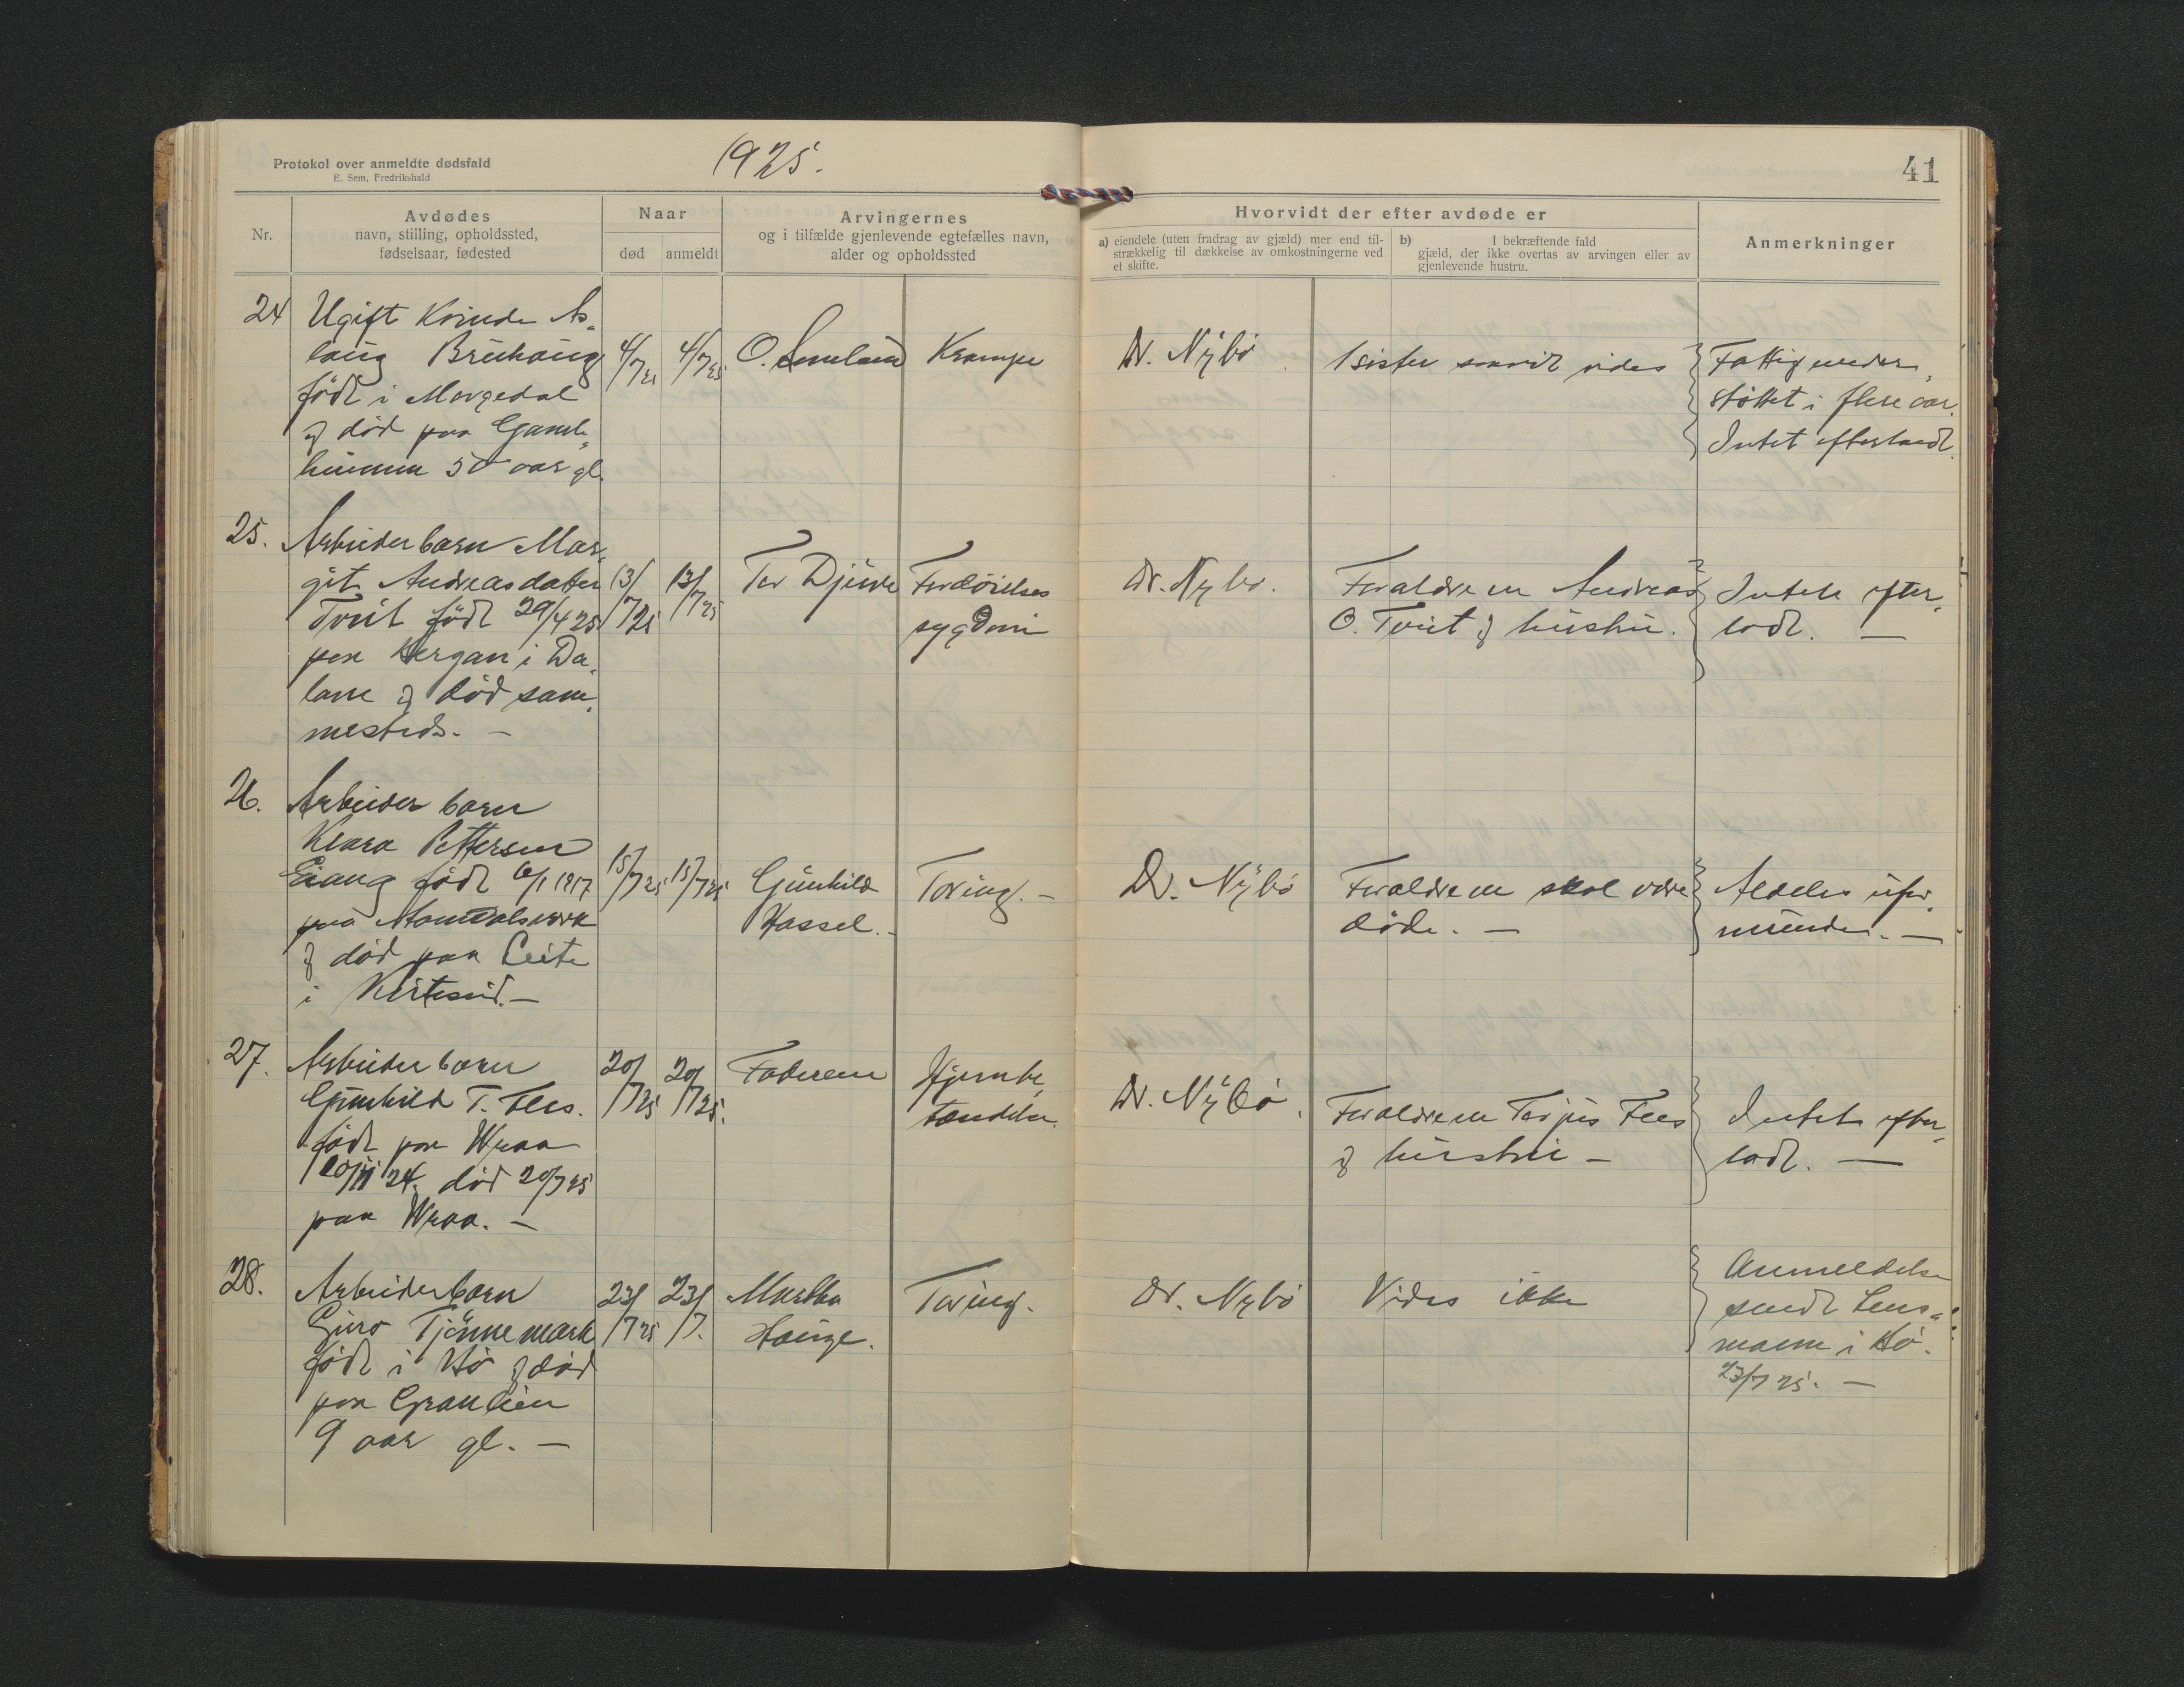 Protokol over anmeldte dødsfald
E. Sem, Fredrikshald
1925.
41
Nr.
Avdødes
navn, stilling, opholdssted,
fødselsaar, fødested
Naar
død
anmeldt
Arvingernes
og i tilfælde gjenlevende egtefælles navn,
alder og opholdssted
Hvorvidt der efter avdøde er
a) eiendele (uten fradrag av gjæld) mer end til-
strækkelig til dækkelse av omkostningerne ved
et skifte.
b) I bekræftende fald
gjæld, der ikke overtas av arvingen eller av
gjenlevende hustru.
Anmerkninger
24 Ugift Kvinde As-
laug
født i Morgedal
og død paa
50 aar gl.
4/7 25
4/7 25
O.
Krampe
Dr. Nybø
1 søster saavidt vides
Fattigunder-
støttet i flere aar.
Intet efterladt.
25. Arbeiderbarn Mar-
git Andreasdatter
Tveit født 29/4 25
paa i Da-
lane og død sam-
mesteds. -
13/7 25
13/7 25
Tor Djuve
sygdom
Dr. Nybø.
Forældrene Andreas
O. Tveit og hustru.
Intet efter-
ladt. -
26. Arbeider barn
Klara Pettersen
født 6/1 1917
paa Aamdalsverk
og død paa Leite
i Kviteseid. -
15/7 25
15/7 25
Gunhild
Hassel. -
Tæring. -
Dr. Nybø
Forældrene skal være
døde. -
Aldeles ufor-
muende. -
27. Arbeider barn
Gunhild T. Flos.
født paa Wraa
24. død 20/7 25
paa Wraa. -
20/7 25
20/7 25.
Faderen
Hjernebe-
tændelse.
Dr. Nybø.
Forældrene Torjus
og hustru -
Intet efter-
ladt. -
28. Arbeiderbarn
Guro Tjønnemark
født i Bø og død
paa Granlien
9 aar gl. -
23/7 25
23/7.
Martha
Hauge.
Tæring.
Dr. Nybø
Vides ikke
Anmeldelse
sendt Lens-
mann i Bø.
23/7 25. -